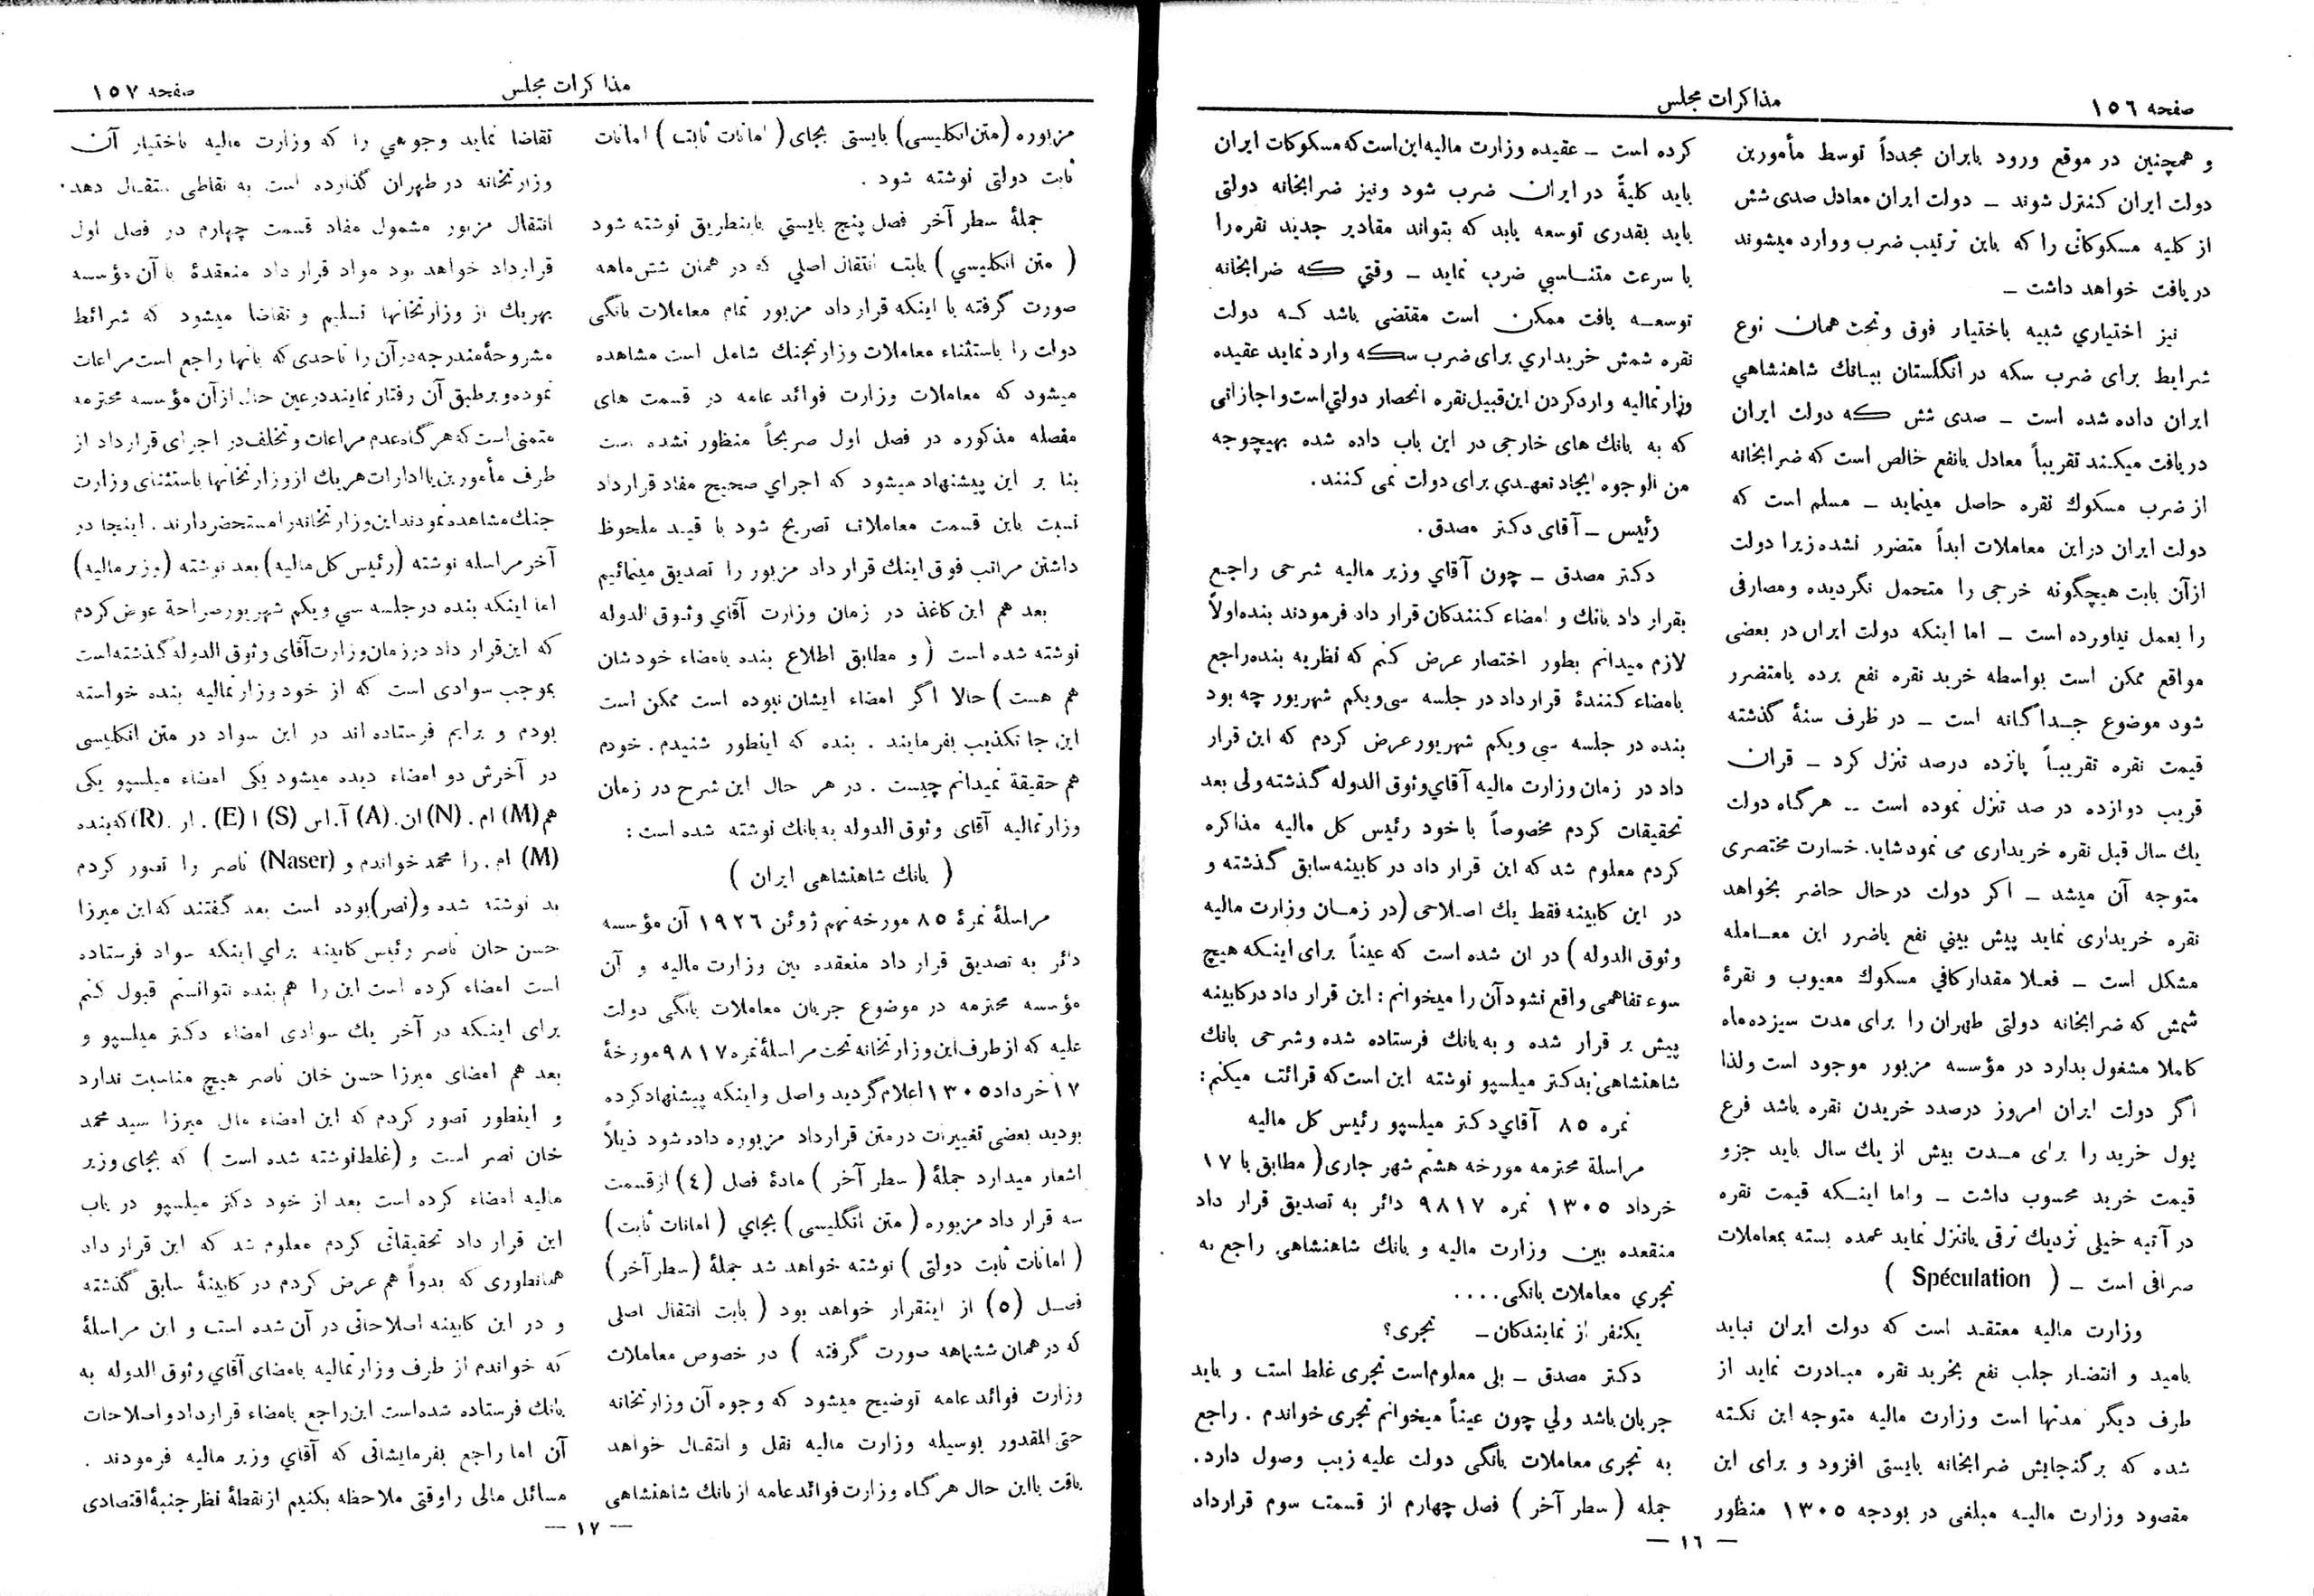 صفحه ١٥٦
مذاكرات مجلس
و همچنین در موقع ورود بایران مجدداً توسط مأمورین
دولت ایران کنترل شوند ــ دولت ایران معادل صدی شش
از کلیه مسکوکاتی را که باین ترتیب ضرب ووارد میشوند
دریافت خواهد داشت ــ
نیز اختیاري شبیه باختیار فوق وتحت همان نوع
شرایط برای ضرب سکه در انگلستان ببانك شاهنشاهي
ایران داده شده است ــ صدی شش که دولت ایران
دریافت میکند تقریباً معادل بانفع خالص است که ضرابخانه
از ضرب مسكوك نقره حاصل مینماید ــ مسلم است که
دولت ایران دراین معاملات ابداً متضرر نشده زیرا دولت
ازآن بابت هیچگونه خرجی را متحمل نگردیده ومصارفی
را بعمل نیاورده است ــ اما اینکه دولت ایران در بعضی
مواقع ممکن است بواسطه خرید نقره نفع برده یامتضرر
شود موضوع جداگانه است ــ در ظرف سنهٔ گذشته
قیمت نقره تقریباً پانزده درصد تنزل کرد ــ قران
قریب دوازده در صد تنزل نموده است ــ هرگاه دولت
یك سال قبل نقره خریداری می نمود شاید. خسارت مختصری
متوجه آن میشد ــ اگر دولت درحال حاضر بخواهد
نقره خریداری نماید پیش بیني نفع یاضرر این معامله
مشکل است ــ فعلا مقدارکافي مسكوك معیوب و نقرهٔ
شمش که ضرابخانه دولتی طهران را برای مدت سیزده ماه
کاملا مشغول بدارد در مؤسسه مزبور موجود است ولذا
اگر دولت ایران امروز درصدد خریدن نقره باشد فرع
پول خرید را برای مدت بیش از یك سال باید جزو
قیمت خرید محسوب داشت ــ واما اینکه قیمت نقره
در آتیه خیلی نزدیك ترقی یاتنزل نماید عمده بسته بمعاملات
صرافی است ــ ( Spéculation )
وزارت مالیه معتقد است که دولت ایران نباید
بامید و انتضار جلب نفع بخرید نقره مبادرت نماید از
طرف دیگر مدتها است وزارت مالیه متوجه این نکته
شده که برگنجایش ضرابخانه بایستی افزود و برای این
مقصود وزارت مالیه مبلغی در بودجه ١٣٠٥ منظور
کرده است ــ عقیده وزارت مالیه این است که مسکوکات ایران
باید کلیةً در ایران ضرب شود ونیز ضرابخانه دولتی
باید بقدری توسعه یابد که بتواند مقادیر جدید نقره را
با سرعت متناسبي ضرب نماید ــ وقتي که ضرابخانه
توسعه یافت ممکن است مقتضی باشد که دولت
نقره شمش خریداري برای ضرب سکه وارد نماید عقیده
وزارتمالیه وارد کردن این قبیل نقره انحصار دولتي است و اجازاتی
که به بانك های خارجی در این باب داده شده بهیچوجه
من الوجوه ایجاد تعهدي برای دولت نمی کنند.
رئیس ــ آقای دکتر مصدق.
دکتر مصدق ــ چون آقاي وزیر مالیه شرحی راجع
بقرار داد بانك و امضاء کنندکان قرار داد فرمودند بنده اولاً
لازم میدانم بطور اختصار عرض کنم که نظریه بنده راجع
بامضاء کنندهٔ قرارداد در جلسه سی ویکم شهریور چه بود
بنده در جلسه سی ویکم شهریور عرض کردم که این قرار
داد در زمان وزارت مالیه آقاي وثوق الدوله گذشته ولی بعد
تحقیقات کردم مخصوصاً با خود رئیس کل مالیه مذاکره
کردم معلوم شد که این قرار داد در کابینه سابق گذشته و
در این کابینه فقط یك اصلاحی (در زمان وزارت مالیه
وثوق الدوله) در ان شده است که عیناً برای اینکه هیچ
سوء تفاهمی واقع نشود آن را میخوانم: این قرار داد در کابینه
پیش بر قرار شده و به بانك فرستاده شده وشرحی بانك
شاهنشاهی بدکتر میلسپو نوشته این است که قرائت میکنم:
نمره ٨٥ آقاي دکتر میلسپو رئیس کل مالیه
مراسلة محترمه مورخه هشتم شهر جاری (مطابق با ١٧
خرداد ١٣٠٥ نمره ٩٨١٧ دائر به تصدیق قرار داد
منعقده بین وزارت مالیه و بانك شاهنشاهی راجع به
تجري معاملات بانکی....
یکنفر از نمایندکان ــ تجری؟
دکتر مصدق ــ بلی معلوم است تجری غلط است و باید
جریان باشد ولي چون عیناً میخوانم تجری خواندم. راجع
به تجری معاملات بانگی دولت علیه زیب وصول دارد.
جمله (سطر آخر) فصل چهارم از قسمت سوم قرارداد
— ١٦ —
مذاكرات مجلس
صفحه ١٥٧
مزبوره (متن انکلیسی) بایستی بجای (امانات ثابت) امانات
ثابت دولتی نوشته شود.
جملهٔ سطر آخر فصل پنج بایستي باینطریق نوشته شود
(متن انکلیسي) بابت انتقال اصلي که در همان شش ماهه
صورت گرفته با اینکه قرار داد مزبور تمام معاملات بانگی
دولت را باستثناء معاملات وزارتجنك شامل است مشاهده
میشود که معاملات وزارت فوائد عامه در قسمت های
مفصله مذکوره در فصل اول صریحاً منظور نشده است
بنا بر این پیشنهاد میشود که اجراي صحیح مفاد قرارداد
نسبت باین قسمت معاملات تصریح شود با قید ملحوظ
داشتن مراتب فوق اینك قرار داد مزبور را تصدیق مینمائیم
بعد هم این کاغذ در زمان وزارت آقاي وثوق الدوله
نوشته شده است (و مطابق اطلاع بنده بامضاء خودشان
هم هست) حالا اگر امضاء ایشان نبوده است ممکن است
این جا تکذیب بفرمایند. بنده که اینطور شنیدم. خودم
هم حقیقة نمیدانم چیست. در هر حال این شرح در زمان
وزارتمالیه آقای وثوق الدوله به بانك نوشته شده است:
(بانك شاهنشاهی ایران)
مراسلهٔ نمرهٔ ٨٥ مورخه نهم ژوئن ١٩٢٦ آن مؤسسه
دائر به تصدیق قرار داد منعقده بین وزارت مالیه و آن
مؤسسه محترمه در موضوع جریان معاملات بانگی دولت
علیه که از طرف این وزارتخانه تحت مراسلهٔ نمره ٩٨١٧ مورخهٔ
١٧ خرداد ١٣٠٥ اعلام گردید واصل و اینکه پیشنهاد کرده
بودید بعضی تغییرات در متن قرارداد مزبوره داده شود ذیلاً
اشعار میدارد جملهٔ (سطر آخر) مادهٔ فصل (٤) از قسمت
سه قرار داد مزبوره (متن انگلیسی) بجاي (امانات ثابت)
(امانات ثابت دولتی) نوشته خواهد شد جملهٔ (سطر آخر)
فصل (٥) از اینقرار خواهد بود (بابت انتقال اصلی
که در همان ششماهه صورت گرفته) در خصوص معاملات
وزارت فوائد عامه توضیح میشود که وجوه آن وزارتخانه
حتی المقدور بوسیله وزارت مالیه نقل و انتقال خواهد
یافت بااین حال هرگاه وزارت فوائد عامه از بانك شاهنشاهی
تقاضا نماید وجوهي را که وزارت مالیه باختیار آن
وزارتخانه در طهران گذارده است به نقاطی انتقال دهد.
انتقال مزبور مشمول مفاد قسمت چهارم در فصل اول
قرارداد خواهد بود مواد قرار داد منعقدهٔ با آن مؤسسه
بهریك از وزارتخانها تسلیم و تقاضا میشود که شرائط
مشروحهٔ مندرجه در آن را تاحدی که بانها راجع است مراعات
نموده و بر طبق آن رفتار نمایند در عین حال از آن مؤسسه محترمه
متمنی است که هرگاه عدم مراعات و تخلف در اجرای قرارداد از
طرف مأمورین یا ادارات هریك از وزارتخانها باستثنای وزارت
جنك مشاهده نمودند این وزارتخانه را مستحضر دارند. اینجا در
آخر مراسله نوشته (رئیس کل مالیه) بعد نوشته (وزیر مالیه)
اما اینکه بنده در جلسه سي ویکم شهریور صراحة عوض کردم
که این قرار داد در زمان وزارت آقای وثوق الدوله گذشته است
بموجب سوادی است که از خود وزارتمالیه بنده خواسته
بودم و برایم فرستاده اند در این سواد در متن انکلیسی
در آخرش دو امضاء دیده میشود یکی امضاء میلسپو یکی
هم (M) ام. (N) ان. (A) آ. اس (S) ا (E). ار. (R) که بنده
(M) ام. را محمد خواندم و (Naser) ناصر را تصور کردم
بد نوشته شده و (نصر) بوده است بعد گفتند که این میرزا
حسن خان ناصر رئیس کابینه براي اینکه سواد فرستاده
است امضاء کرده است این را هم بنده نتوانستم قبول کنم
برای اینکه در آخر یك سوادی امضاء دکتر میلسپو و
بعد هم امضای میرزا حسن خان ناصر هیچ مناسبت ندارد
و اینطور تصور کردم که این امضاء مال میرزا سید محمد
خان نصر است و (غلط نوشته شده است) که بجای وزیر
مالیه امضاء کرده است بعد از خود دکتر میلسپو در باب
این قرار داد تحقیقاتی کردم معلوم شد که این قرار داد
همانطوری که بدواً هم عرض کردم در کابینهٔ سابق گذشته
و در این کابینه اصلاحاتی در آن شده است و این مراسلهٔ
که خواندم از طرف وزارتمالیه بامضای آقاي وثوق الدوله به
بانك فرستاده شده است این راجع بامضاء قرارداد و اصلاحات
آن اما راجع بفرمایشاتی که آقاي وزیر مالیه فرمودند.
مسائل مالی را وقتی ملاحظه بکنیم از نقطهٔ نظر جنبهٔ اقتصادی
— ١٧ —